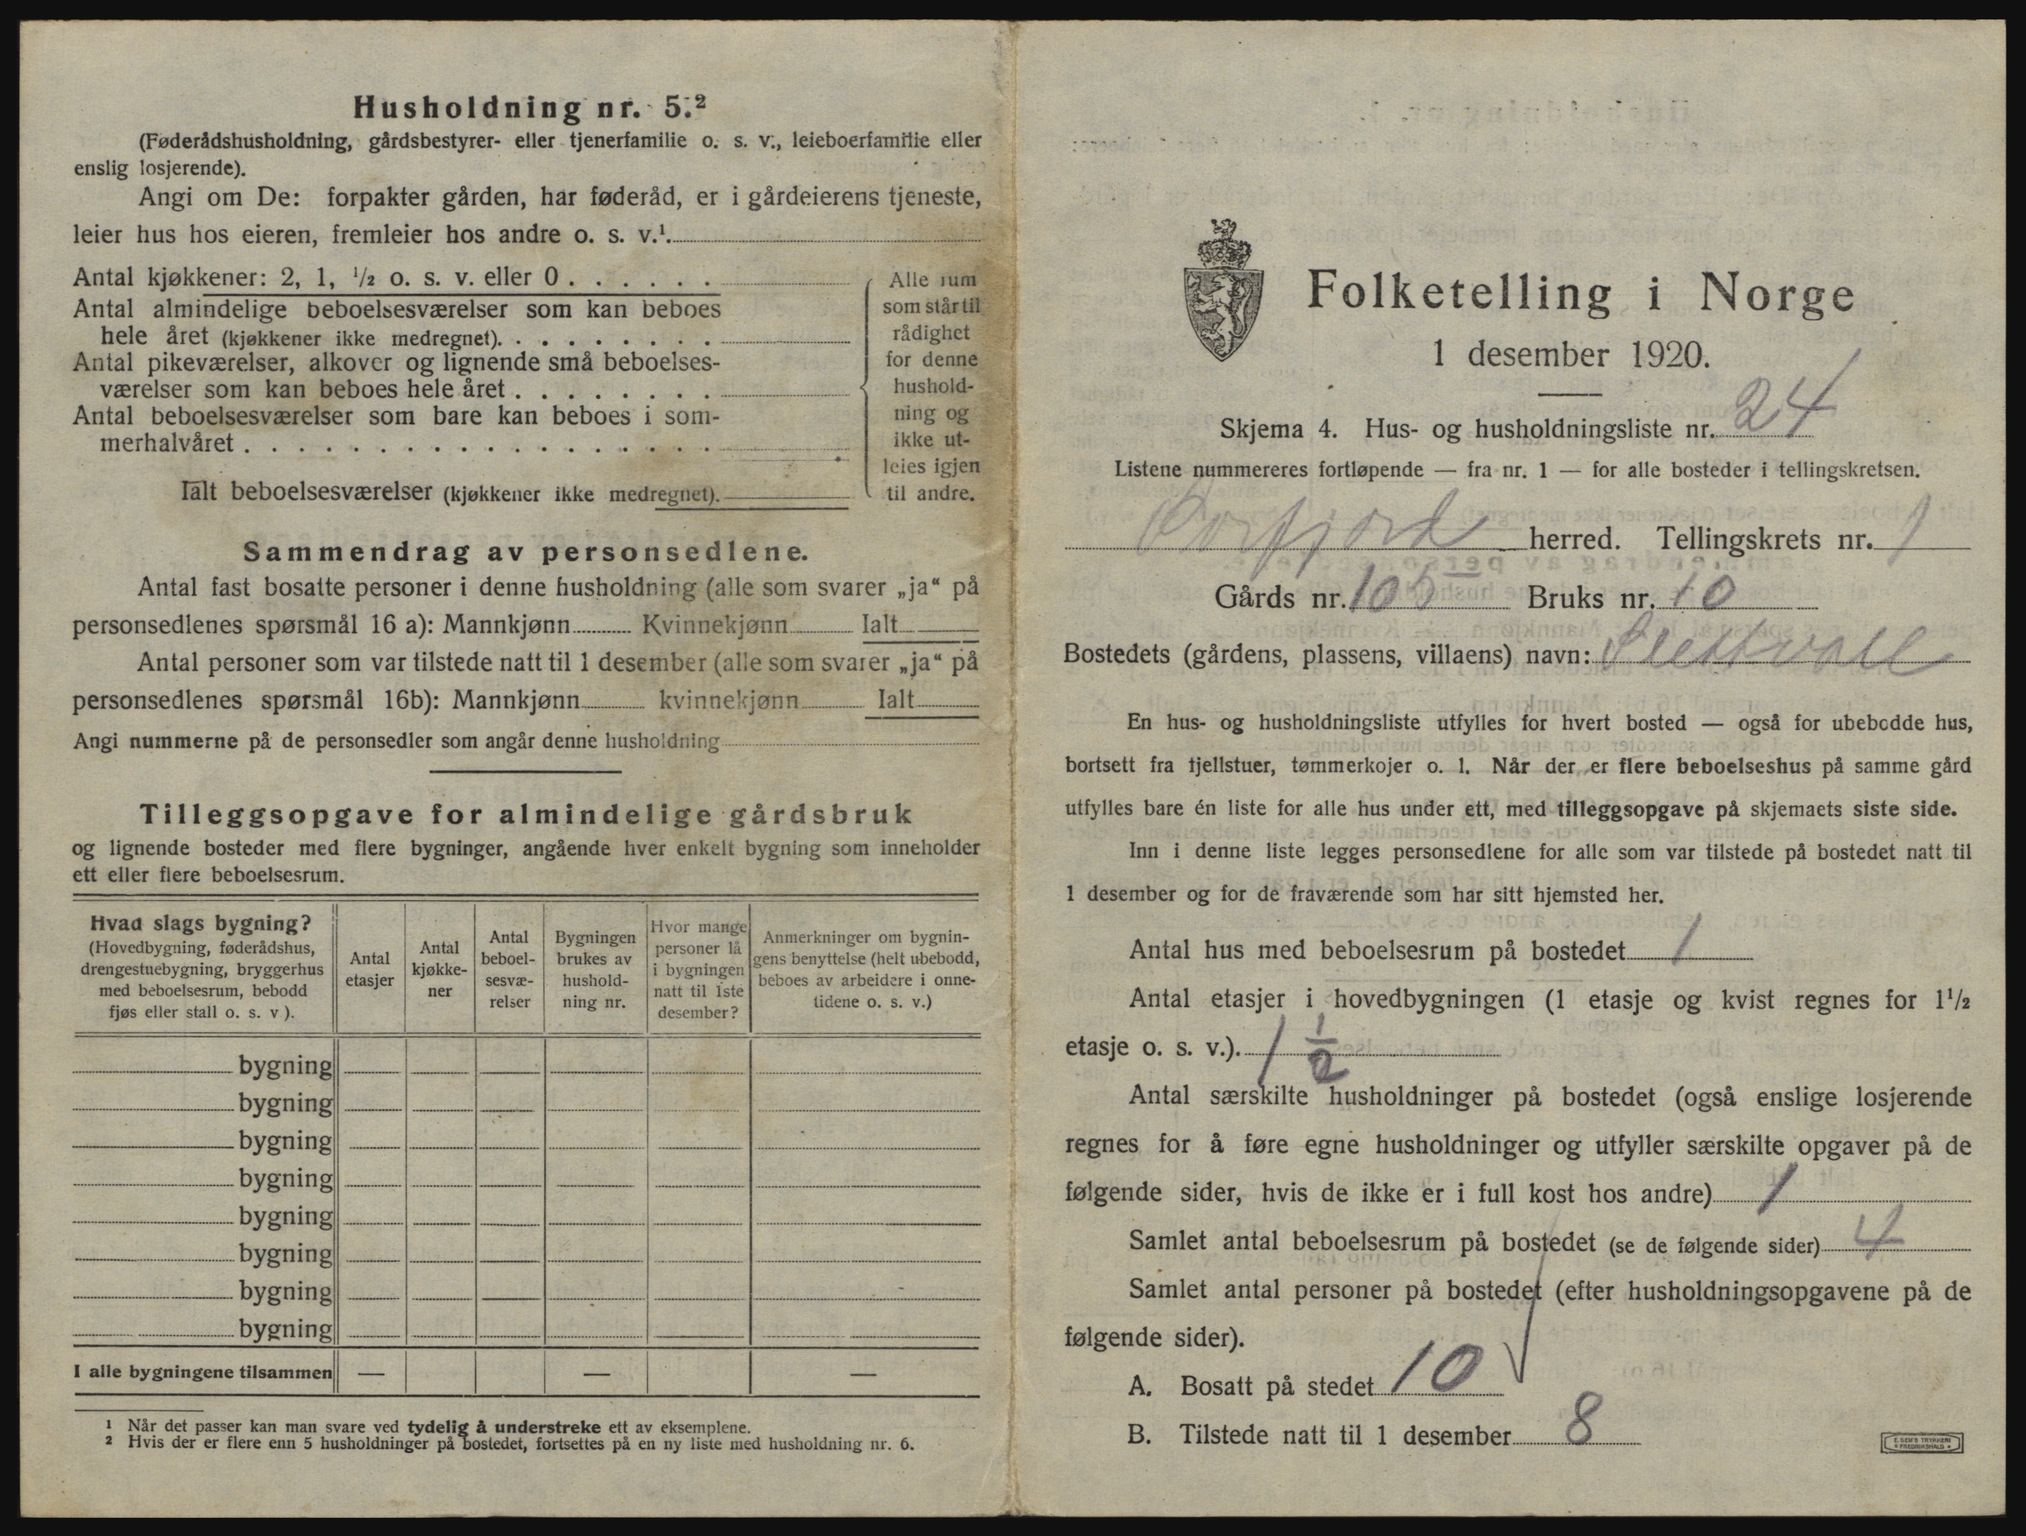 Husholdning nr. 5.²
(Føderådshusholdning, gårdsbestyrer- eller tjenerfamilie o. s. v., leieboerfamilie eller
enslig losjerende).
Angi om De: forpakter gården, har føderåd, er i gårdeierens tjeneste,
leier hus hos eieren, fremleier hos andre o. s. v.¹.
Antal kjøkkener: 2, 1, ¹/₂ o. s. v. eller 0 . . . . . .
Antal almindelige beboelsesværelser som kan beboes
hele året (kjøkkener ikke medregnet). . . . . . . . .
Antal pikeværelser, alkover og lignende små beboelses-
værelser som kan beboes hele året . . . . . . . .
Antal beboelsesværelser som bare kan beboes i som-
merhalvåret . . . . . . . . . . . . . . . . . .
Ialt beboelsesværelser (kjøkkener ikke medregnet).
Alle rum
som står til
rådighet
for denne
hushold-
ning og
ikke ut-
leies igjen
til andre.
Sammendrag av personsedlene.
Antal fast bosatte personer i denne husholdning (alle som svarer „ja“ på
personsedlenes spørsmål 16 a): Mannkjønn Kvinnekjønn Ialt
Antal personer som var tilstede natt til 1 desember (alle som svarer „ja“ på
personsedlenes spørsmål 16b): Mannkjønn kvinnekjønn Ialt
Angi nummerne på de personsedler som angår denne husholdning
Tilleggsopgave for almindelige gårdsbruk
og lignende bosteder med flere bygninger, angående hver enkelt bygning som inneholder
ett eller flere beboelsesrum.
Hvad slags bygning?
(Hovedbygning, føderådshus,
drengestuebygning, bryggerhus
med beboelsesrum, bebodd
fjøs eller stall o. s. v ).
Antal
etasjer
Antal
kjøkke-
ner
Antal
beboel-
sesvæ-
relser
Bygningen
brukes av
hushold-
ning nr.
Hvor mange
personer lå
i bygningen
natt til 1ste
desember?
Anmerkninger om bygnin-
gens benyttelse (helt ubebodd,
beboes av arbeidere i onne-
tidene o. s. v.)
bygning
bygning
bygning
bygning
bygning
bygning
bygning
bygning
I alle bygningene tilsammen — — —
¹ Når det passer kan man svare ved tydelig å understreke ett av eksemplene.
² Hvis der er flere enn 5 husholdninger på bostedet, fortsettes på en ny liste med husholdning nr. 6.
Folketelling i Norge
1 desember 1920.
Skjema 4. Hus- og husholdningsliste nr. 24
Listene nummereres fortløpende — fra nr. 1 — for alle bosteder i tellingskretsen.
herred. Tellingskrets nr. 1
Gårds nr. 105 Bruks nr. 10
Bostedets (gårdens, plassens, villaens) navn: Slettvoll
En hus- og husholdningsliste utfylles for hvert bosted — også for ubebodde hus,
bortsett fra fjellstuer, tømmerkojer o. l. Når der er flere beboelseshus på samme gård
utfylles bare én liste for alle hus under ett, med tilleggsopgave på skjemaets siste side.
Inn i denne liste legges personsedlene for alle som var tilstede på bostedet natt til
1 desember og for de fraværende som har sitt hjemsted her.
Antal hus med beboelsesrum på bostedet 1
Antal etasjer i hovedbygningen (1 etasje og kvist regnes for 1¹/₂
etasje o. s. v.). 1 ½
Antal særskilte husholdninger på bostedet (også enslige losjerende
regnes for å føre egne husholdninger og utfyller særskilte opgaver på de
følgende sider, hvis de ikke er i full kost hos andre) 1
Samlet antal beboelsesrum på bostedet (se de følgende sider) 4
Samlet antal personer på bostedet (efter husholdningsopgavene på de
følgende sider).
A. Bosatt på stedet 10
B. Tilstede natt til 1 desember 8
E. SEM'S TRYKKERI
FREDRIKSHALD